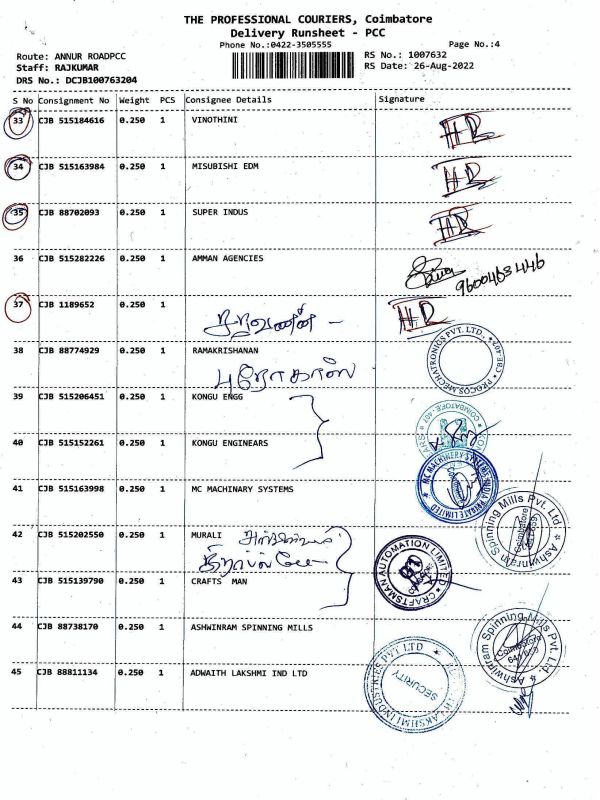 THE PROFESSIONAL COURIERS, Coimbatore
Delivery Runsheet - PCC
Phone No.:0422-3505555
Page No.:4
Route: ANNUR ROADPCC
RS No.: 1007632
Staff: RAJKUMAR
RS Date: 26-Aug-2022
DRS No.: DCJB100763204
S No Consignment No Weight PCS Consignee Details Signature
33 CJB 515184616 0.250 1 VINOTHINI
34 CJB 515163984 0.250 1 MISUBISHI EDM
35 CJB 88702093 0.250 1 SUPER INDUS
36 CJB 515282226 0.250 1 AMMAN AGENCIES
37 CJB 1189652 0.250 1
38 CJB 88774929 0.250 1 RAMAKRISHANAN
39 CJB 515206451 0.250 1 KONGU ENGG
40 CJB 515152261 0.250 1 KONGU ENGINEARS
41 CJB 515163998 0.250 1 MC MACHINARY SYSTEMS
42 CJB 515202550 0.250 1 MURALI
43 CJB 515139790 0.250 1 CRAFTS MAN
44 CJB 88738170 0.250 1 ASHWINRAM SPINNING MILLS
45 CJB 88811134 0.250 1 ADWAITH LAKSHMI IND LTD
MC MACHINERY SYSTEMS INDIA PRIVATE LIMITED
Ashwinram Spinning Mills Pvt. Ltd
CRAFTSMAN AUTOMATION LIMITED
Ashwinram Spinning Mills Pvt. Ltd.
Coimbatore
SECURITY